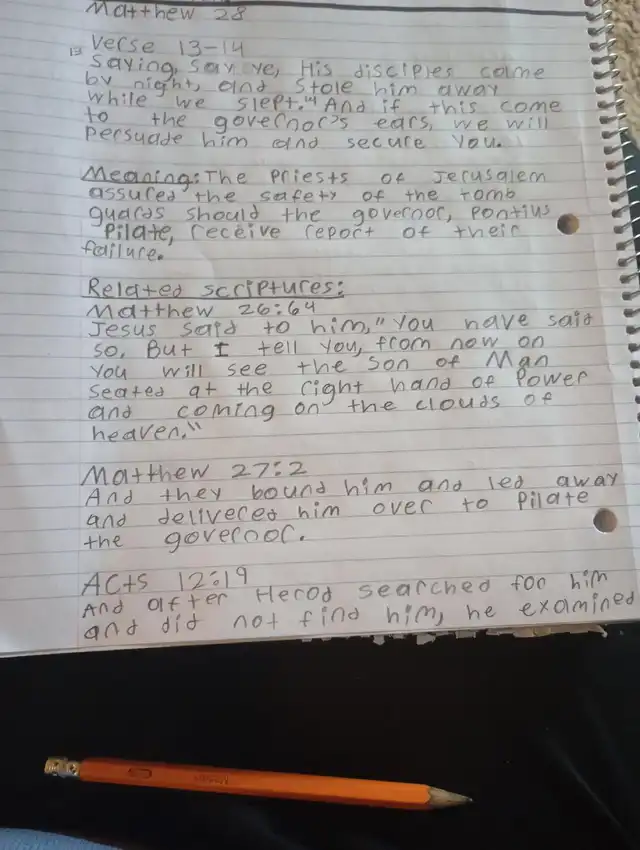 Matthew 28
13 Verse 13-14
Saying, Say ye, His disciples came
by night, and stole him away
while we slept." And if this come
to the governor's ears, we will
persuade him and secure you.
Meaning: The Priests of Jerusalem
assured the safety of the tomb
guards should the governor, Pontius
Pilate, receive report of their
failure.
Related scriptures:
Matthew 26:64
Jesus said to him, "You have said
so, But I tell you, from now on
you will see the Son of Man
seated at the right hand of Power
and coming on the clouds of
heaven."
Matthew 27:2
And they bound him and led away
and delivered him over to Pilate
the governor.
Acts 12:19
And after Herod searched for him
and did not find him, he examined